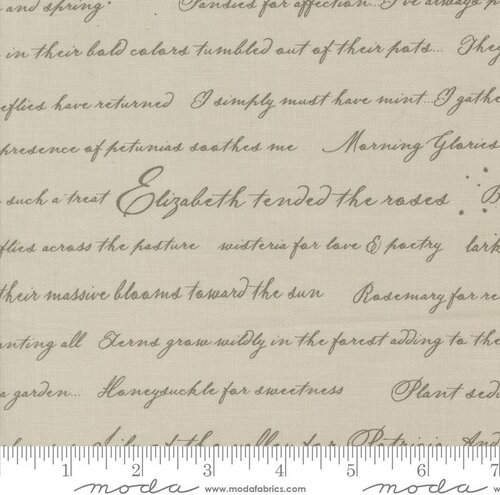 and spring. Pansies for affection... I've always p
in their bold colors tumbled out of their pots... They
eflies have returned I simply must have mint... I gathe
presence of petunias soothes me Morning Glories
such a treat Elizabeth tended the roses B
flies across the pasture wisteria for love & poetry lark
their massive blooms toward the sun Rosemary for re
anting all Ferns grow wildly in the forest adding to the
a garden... Honeysuckle for sweetness Plant sed
of the valley for Patricia And
1 2 3 4 5 6 7
moda www.modafabrics.com moda www.modafabrics.com moda